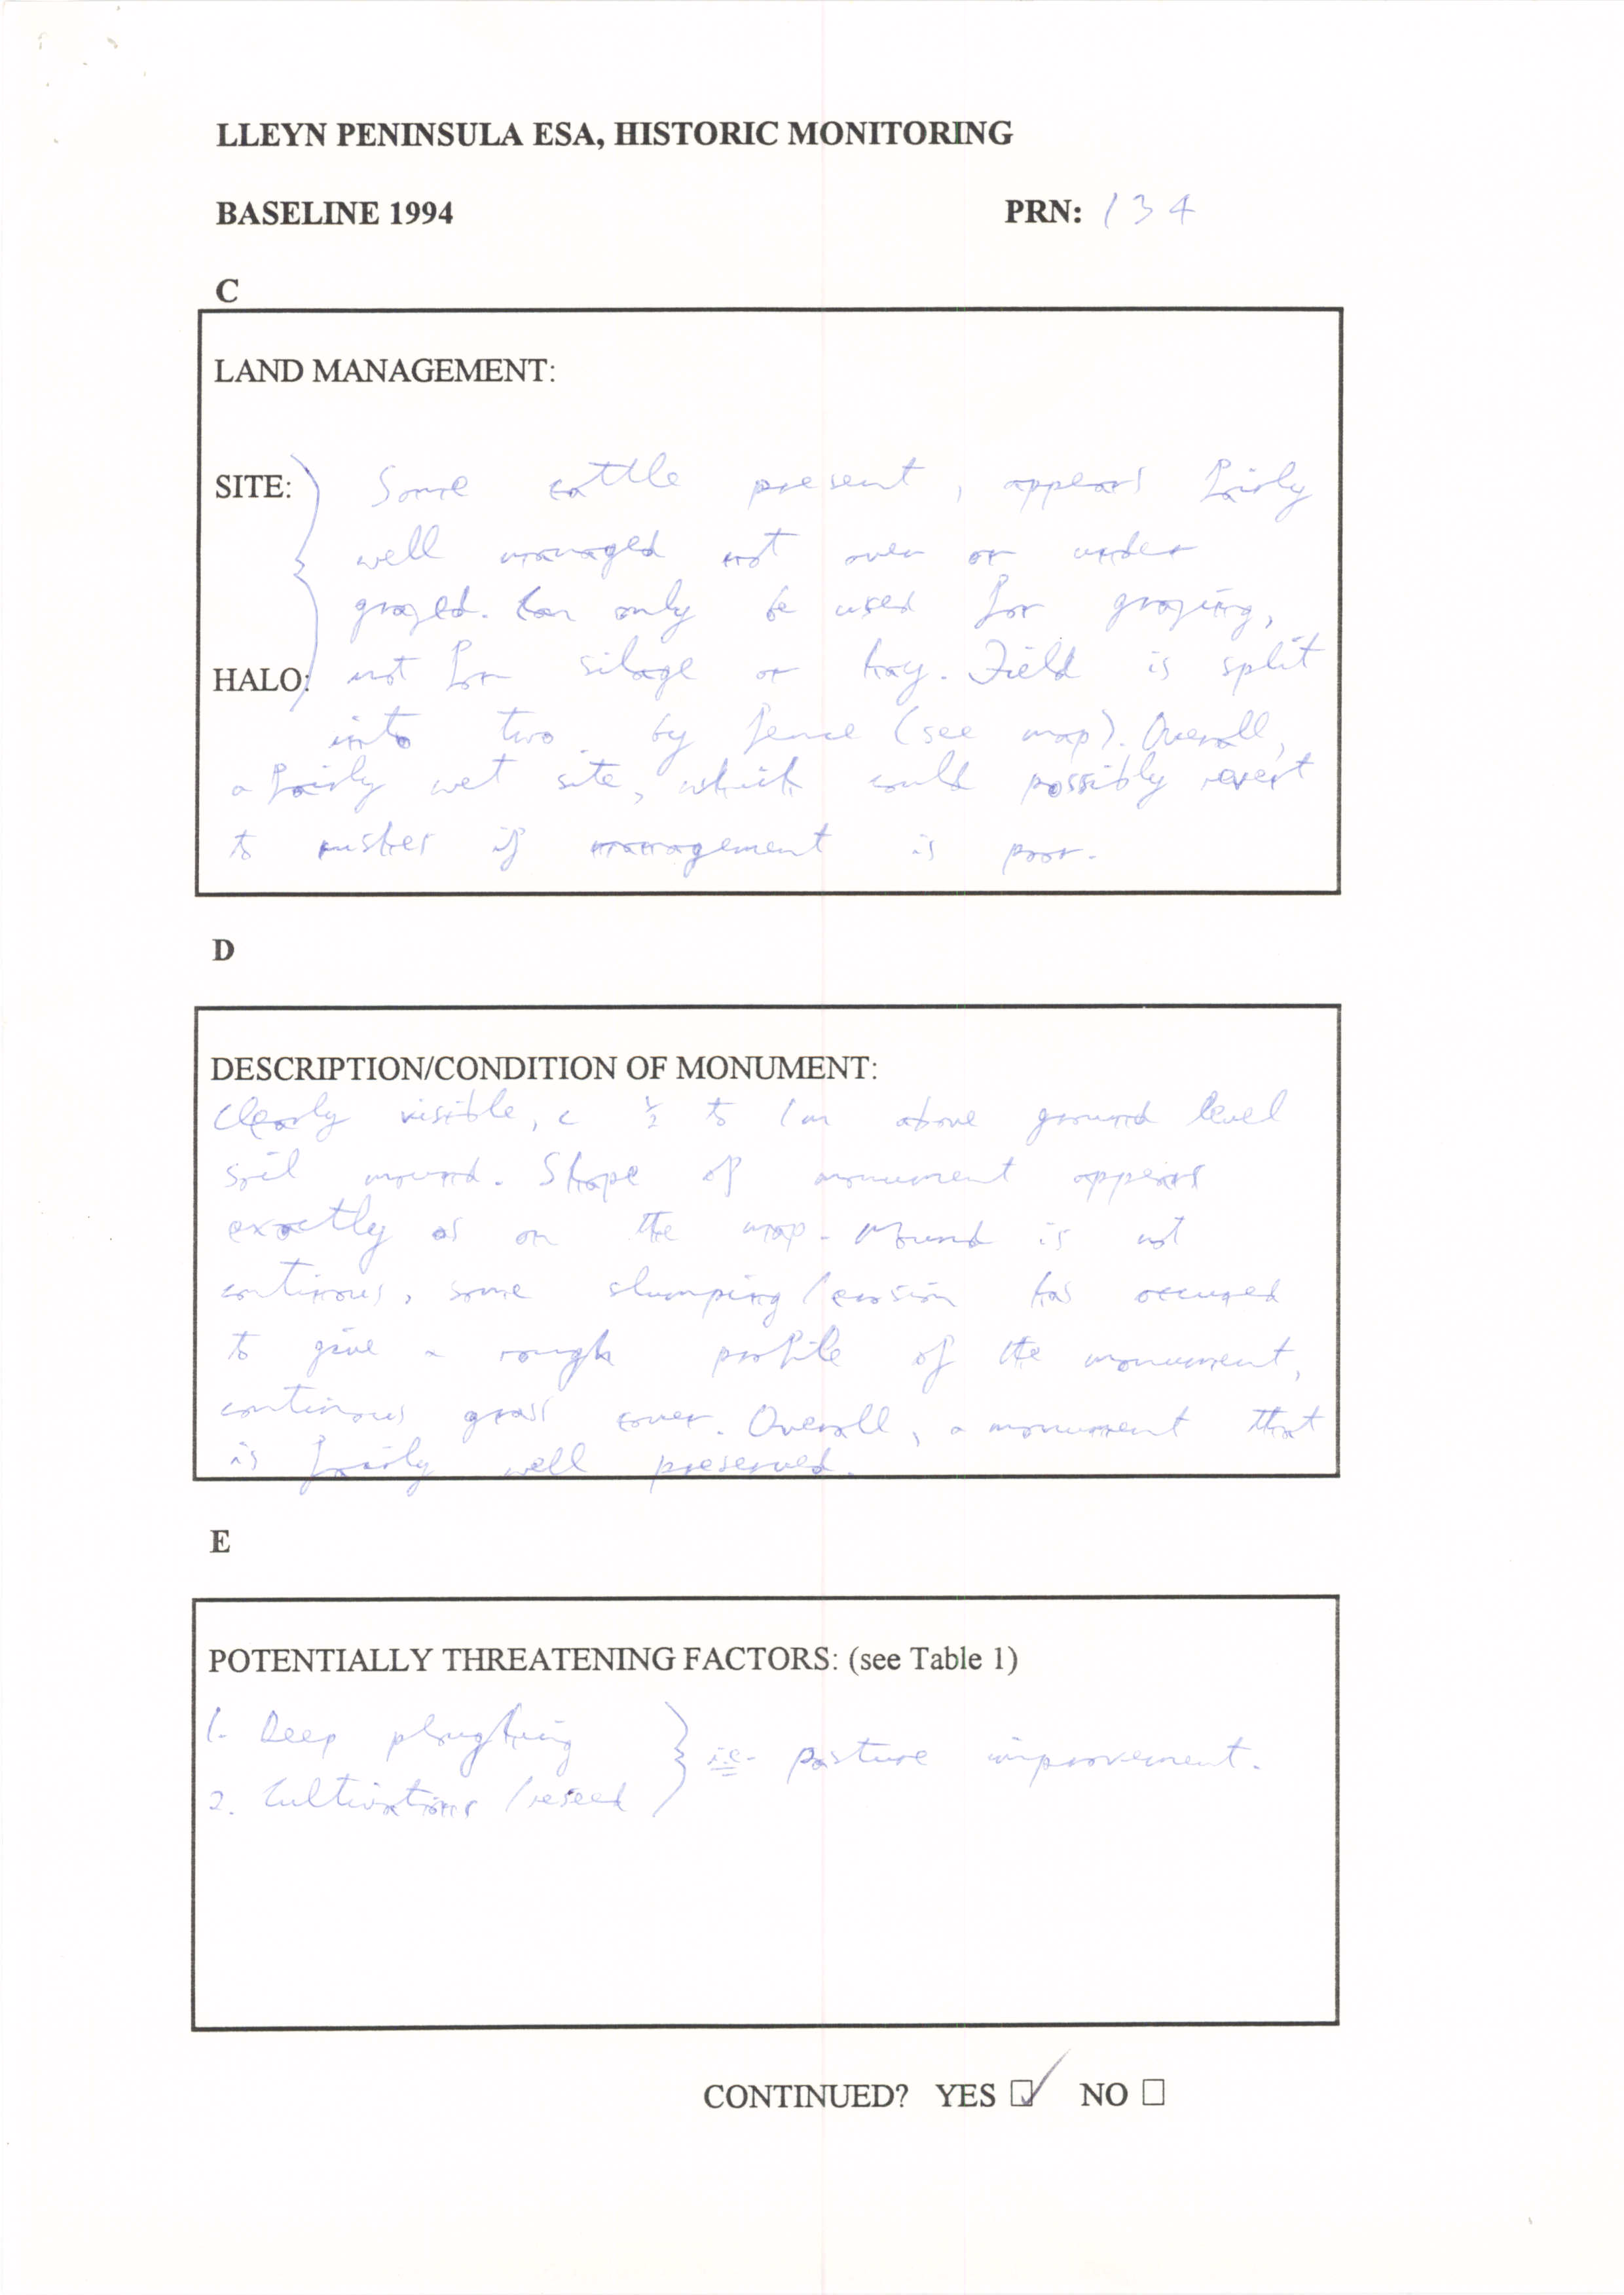 LLEYN PENINSULA ESA, HISTORIC MONITORING
BASELINE 1994 PRN: 134
C
LAND MANAGEMENT:
SITE: Some cattle present, appears fairly
well managed not over or under
grazed. Can only be used for grazing,
HALO: not for silage or hay. Field is split
into two by fence (see map). Overall,
a fairly wet site, which could possibly revert
to rushes if management is poor.
D
DESCRIPTION/CONDITION OF MONUMENT:
Clearly visible, c ½ to 1m above ground level
soil mound. Shape of monument appears
exactly as on the map. Mound is not
continous, some slumping/erosion has occured
to give a rough profile of the monument,
continous grass cover. Overall, a monument that
is fairly well preserved.
E
POTENTIALLY THREATENING FACTORS: (see Table 1)
1. Deep ploughing } i.e. pasture improvement.
2. Cultivations/reseed
CONTINUED? YES ☑ NO ☐